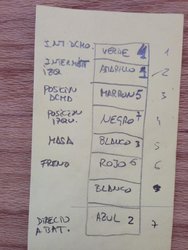 INT DCHO. VERDE 4 1
INTERMIT IZQ. AMARILLO 1 2
POSICION DCHO MARRON 5 3
POSICION IZQU. NEGRO 7 4
MASA BLANCO 3 5
FRENO ROJO 6 6
BLANCO
DIRECTO A BAT. AZUL 2 7